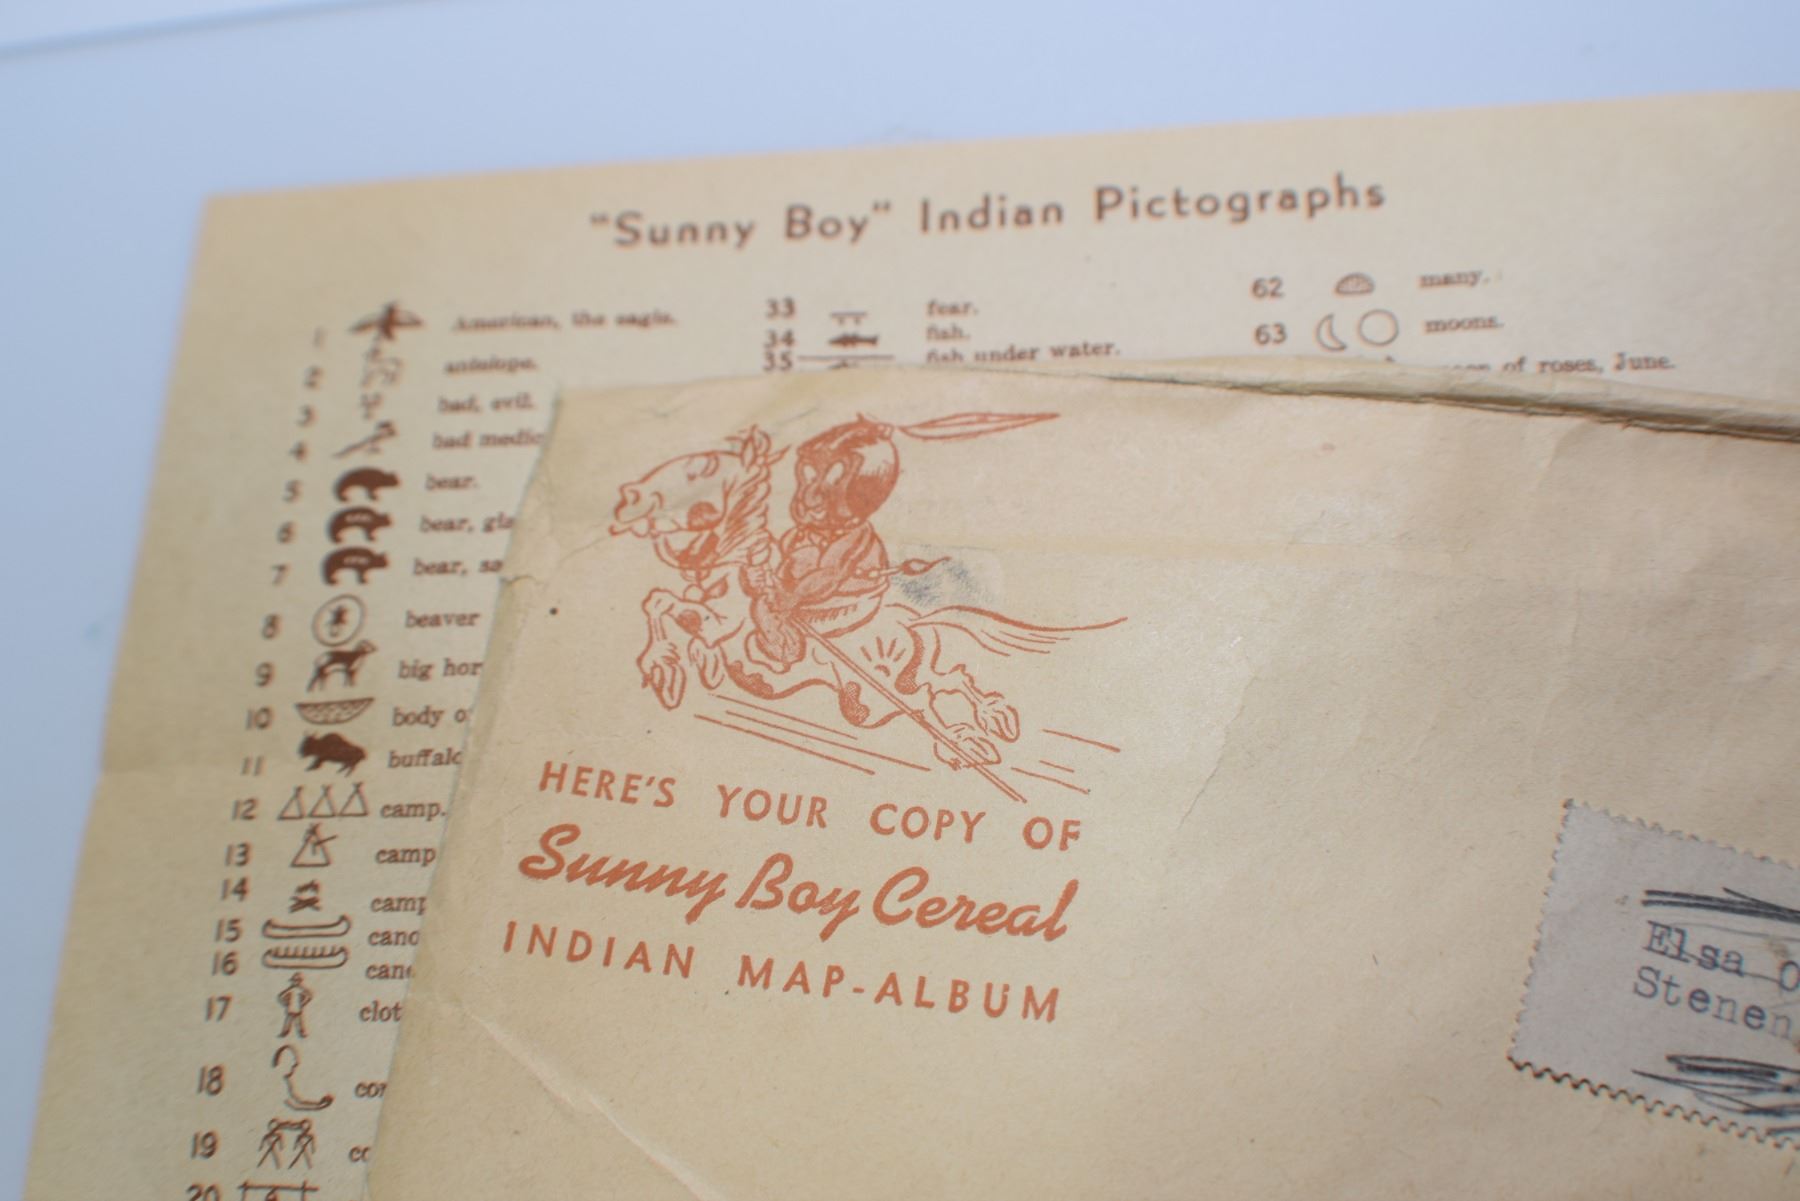 "Sunny Boy" Indian Pictographs
1 American, the eagle.
2 antelope.
3 bad, evil.
4 bad medic
5 bear.
6 bear, gla
7 bear,
8 beaver
9 big hor
10 body o
11 buffalo
12 camp.
13 camp
14 camp
15 cano
16 cano
17 clot
18 cor
19
20
33 fear.
34 fish.
35 fish under water.
62 many.
63 moons.
of roses, June.
HERE'S YOUR COPY OF
Sunny Boy Cereal
INDIAN MAP-ALBUM
Elsa O
Stenen